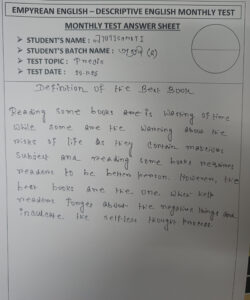 EMPYREAN ENGLISH – DESCRIPTIVE ENGLISH MONTHLY TEST
MONTHLY TEST ANSWER SHEET
➢ STUDENT'S NAME :
➢ STUDENT'S BATCH NAME : (2)
➢ TEST TOPIC : Precis
➢ TEST DATE :
Definition of the Best Book
Reading some books are is wasting of time
While some are the warning about the
risks of life as they contain malicious
Subject and reading some books
readers to be better person. However, the
best books are the one which help
readers forget about the negative things and
inculcate the selfless thought process.